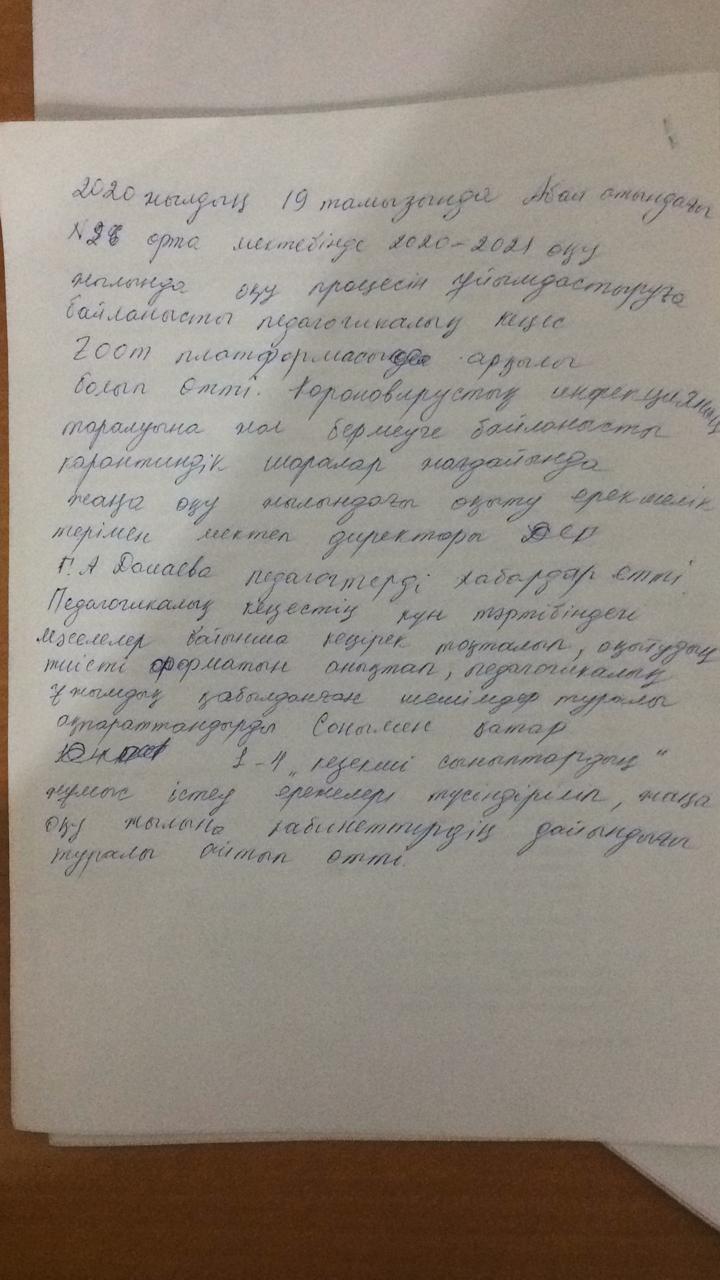 2020 жылдың 19 тамызында Абай атындағы
№28 орта мектебінде 2020-2021 оқу
жылында оқу процесін ұйымдастыруға
байланысты педагогикалық кеңес
Zoom платформасы арқылы
болып өтті. Короновирустық инфекцияның
таралуына жол бермеуге байланысты
карантиндік шаралар жағдайында
жаңа оқу жылындағы оқыту ерекшелік
терімен мектеп директоры
Г.А педагогтерді хабардар етті.
Педагогикалық кеңестің күн тәртібіндегі
мәселелер бойынша кеңірек тоқталып, оқытудың
тиісті форматын анықтап, педагогикалық
ұжымдық қабылданған шешімдер туралы
ақпараттандырды Сонымен қатар
1-4 „кезекші сыныптардың"
жұмыс істеу ережелері түсіндіріліп, жаңа
оқу жылына кабинеттердің дайындығы
туралы айтып өтті.